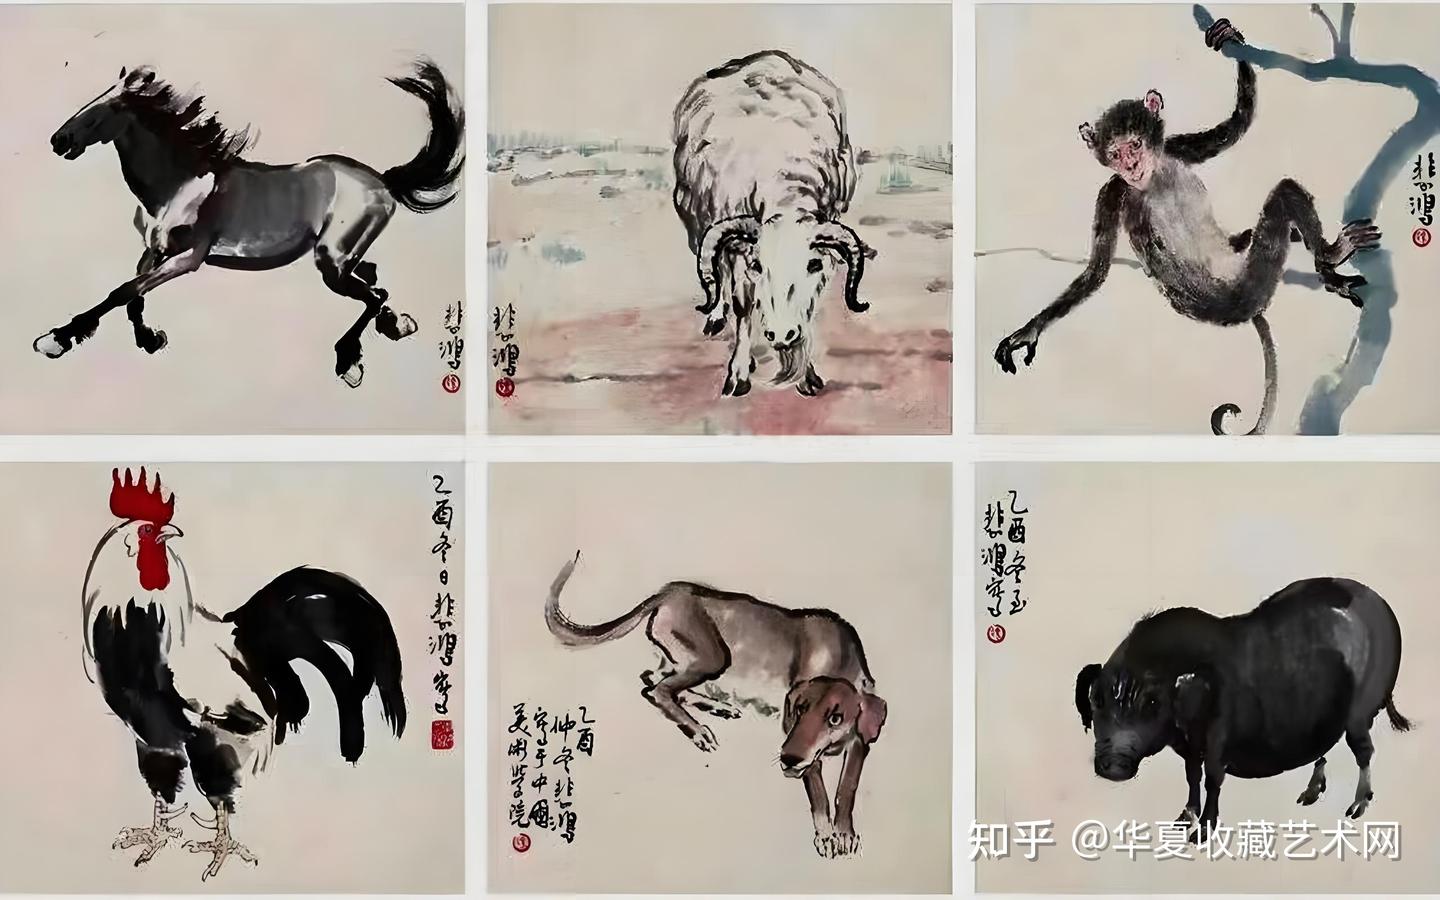 悲鸿
悲鸿
悲鸿
乙酉冬日悲鸿写
乙酉
仲冬悲鸿
写于中国
美术学院
乙酉冬至
悲鸿写
知乎 @华夏收藏艺术网